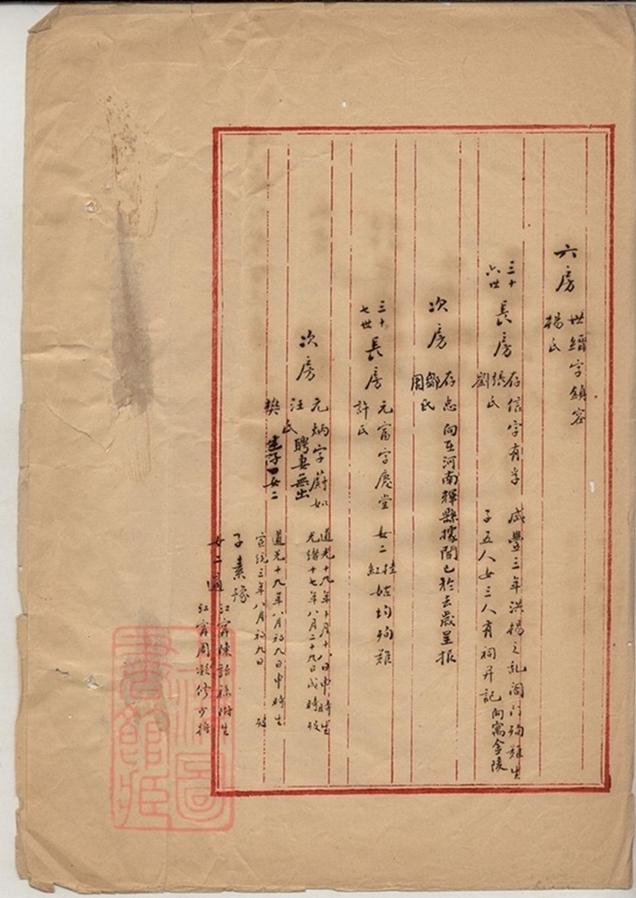 六房
世縉字鎮容
楊氏
三十六世
長房
存信字有孚
張氏
劉
咸豐三年洪楊之亂闔門殉難生
子五人女三人有祠并記
向寓金陵
次房
存忠
鄒氏
周
向在河南輝縣據聞已於去歲呈报
三十七世
長房
元富字慶堂
許氏
女二
桂
紅
姑均殉難
次房
元炳字蔚如
汪氏
聘妻無出
樊
女二
道光十九年十月十八日申時生
光緒十七年八月二十九日戌時歿
道光十九年八月初九日申時生
宣統三年八月初九日
歿
子素
女二適
江寧陳
江寧周